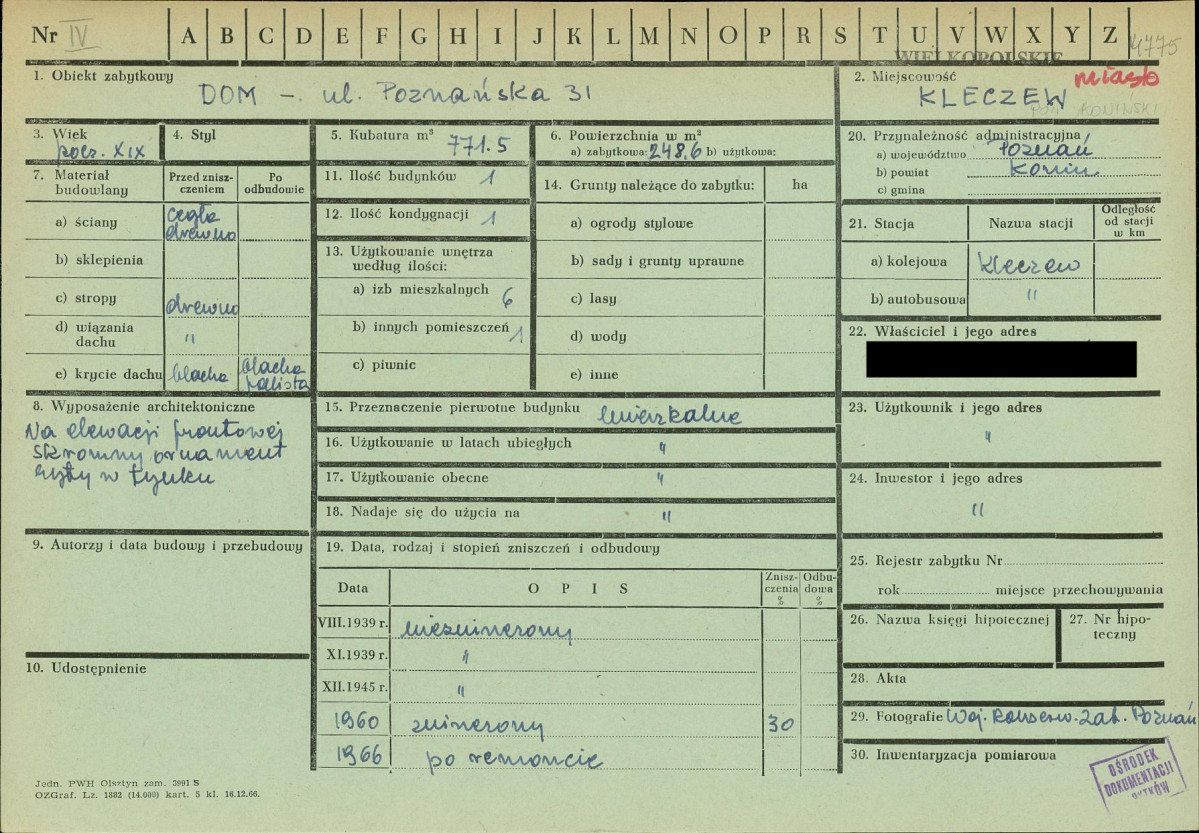 Nr IV A B C D E F G H I J K L M N O P R S T U V W X Y Z 4775
WIELKOPOLSKIE
1. Obiekt zabytkowy
DOM - ul. Poznańska 31
2. Miejscowość miasto
KLECZEW
POW. KONIŃSKI
3. Wiek
pocz. XIX
4. Styl
5. Kubatura m³ 771.5
6. Powierzchnia w m²
a) zabytkowa: 248,6 b) użytkowa:
20. Przynależność administracyjna
a) województwo Poznań
b) powiat Konin
c) gmina
7. Materiał budowlany
Przed zniszczeniem
Po odbudowie
a) ściany cegła drewno
b) sklepienia
c) stropy drewno
d) wiązania dachu "
e) krycie dachu blacha blacha falista
11. Ilość budynków 1
12. Ilość kondygnacji 1
13. Użytkowanie wnętrza według ilości:
a) izb mieszkalnych 6
b) innych pomieszczeń 1
c) piwnic
14. Grunty należące do zabytku: ha
a) ogrody stylowe
b) sady i grunty uprawne
c) lasy
d) wody
e) inne
21. Stacja Nazwa stacji Odległość od stacji w km
a) kolejowa Kleczew
b) autobusowa "
22. Właściciel i jego adres
8. Wyposażenie architektoniczne
Na elewacji frontowej
skromny ornament
ryty w tynku
15. Przeznaczenie pierwotne budynku mieszkalne
16. Użytkowanie w latach ubiegłych "
17. Użytkowanie obecne "
18. Nadaje się do użycia na "
23. Użytkownik i jego adres
"
24. Inwestor i jego adres
"
9. Autorzy i data budowy i przebudowy
10. Udostępnienie
19. Data, rodzaj i stopień zniszczeń i odbudowy
Data OPIS Zniszczenia % Odbudowa %
VIII.1939 r. niezniszczony
XI.1939 r. "
XII.1945 r. "
1960 zniszczony 30
1966 po remoncie
25. Rejestr zabytku Nr
rok miejsce przechowywania
26. Nazwa księgi hipotecznej
27. Nr hipoteczny
28. Akta
29. Fotografie Woj. Konserw. Zab. Poznań
30. Inwentaryzacja pomiarowa
OŚRODEK
DOKUMENTACJI
Jedn. PWH Olsztyn zam. 3991 S
OZGraf. Lz. 1882 (14.000) kart. 5 kl. 16.12.66.